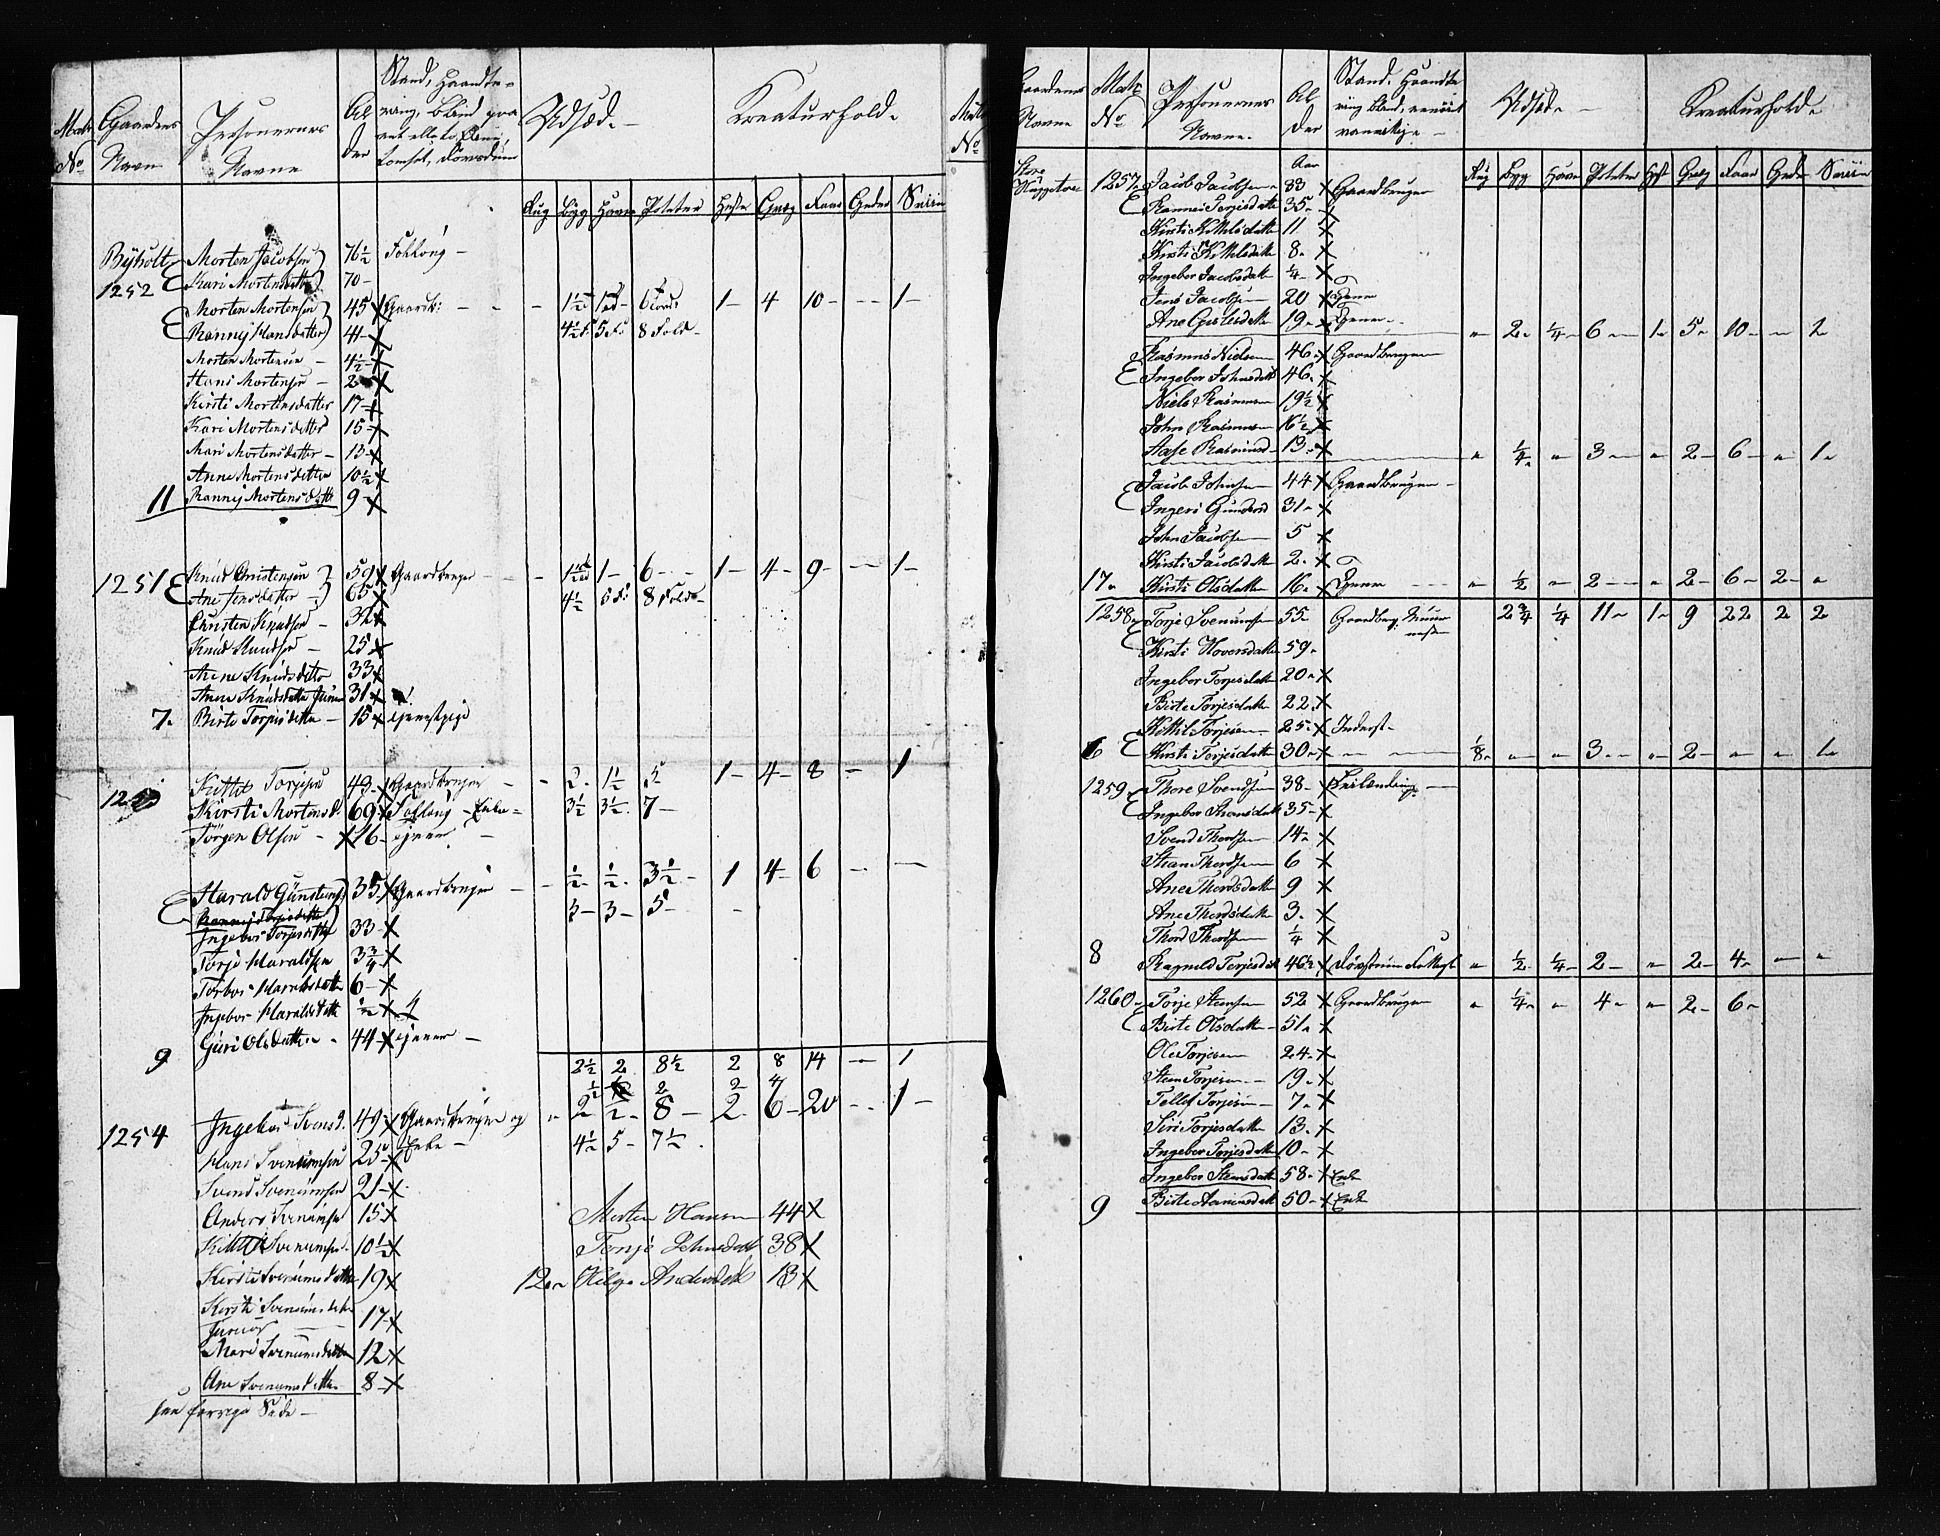 Matr No Gaardens Navn Personernes Navne Alder Stand, Haandtering, blind paa Udsæd. Kreaturhold.
Rug Byg Havre Poteter Heste Qvæg Faar Geder Sviin
Byholt Morten Jacobsen 76½ Follaug
1252 Kari Mortensdatter 70
Morten Mortensen 45 x Gaardb: 1½ 1 6 1 4 10 1
Ranney Hansdatter 41 x 4½ F 5 F 8 Fold
Morten Mortensen 4½ x
Hans Mortensen 2 x
Kirsti Mortensdatter 17 x
Kari Mortensdatter 15 x
Mari Mortensdatter 13 x
Anne Mortensdatter 10½ x
11 Ranney Mortensdatt 9 x
1251 Knud Christensen 59 x Gaardbruger 1½ 1 6 1 4 9 1
Ane Jensdatter 65 x 4½ 8 Fold
Christen Knudsen 32 x
Knud Knudsen 25 x
Anne Knudsdatter 33 x
Anne Knudsdatter Junior 31 x
7. Birte Torjesdatter 15 x tjenestpige
Kittel Torjesen 43 x Gaardbruger 2 1½ 5 1 4 8 1
Kirsti Mortensd. 69 x Follaug Enke 3½ 3½ 7
Jörgen Olsen x 16 tjener
Harald Gunstens 35 x Gaardbruger ½ ½ 3½ 1 4 6
3 3 5
Ingebor Torjesdatter 33 x
Torje Haraldsen 3¾ x
Torbor Haraldsdatt 6 x
Ingebor Haraldsdatt ½ x
9 Guri Olsdatter 44 x tjener
2½ 2 8½ 2 8 14 1
½ 2 2 4
1254 Ingebor Svensd. 49 x Gaardbruger og 2 ½ 8 2 6 20 1
Hans Svenumsen 25 x Enke 4½ 5 7½
Svend Svenumsen 21 x
Anders Svenumsen 15 x Morten Hansen 44 x
Kittel Svenumsen 10½ x Tonje Johnsdatt 38 x
Kirsti Svenumsdatter 19 x 12 Helge Andersdatt 13 x
Kirsti Svenumsdatter
Junior 17 x
Mari Svenumsdatter 12 x
Ane Svenumsdatter 8 x
see forrige Side
Gaardenes Navne Matr No Personernes Navne Alder Stand. Haandtering blind, Udsæd Kreaturhold.
Aar Rug Byg Havre Poteter Hest Qvæg Faar Geder Sviin
Store
1257 Jacob Jacobsen 83 x Gaardbruger
Rannei Torjesdatter 35 x
Kirsti Kittelsdatter 11 x
Kirsti Kittelsdatter 8 x
Ingebor Jacobsdatter ¼ x
Jens Jacobsen 20 x Tjener
Ane Gjertsdatter 19 x Tjener 2 ¼ 6 1 5 10 2
Rasmus Nielsen 46 x Gaardbruger
Ingebor Johnsdatt 46 x
Niels Rasmusen 19½ x
John Rasmusen 16½ x
Aase Rasmusd 13 x ¼ 3 2 6 1
Jacob Johnsen 44 x Gaardbruger
Ingeri Gundersd 31 x
John Jacobsen 5 x
Kirsti Jacobsdatter 2 x
17 Kirsti Olsdatter 16 x Tjener ½ 2 2 6 2
1258 Torje Svenumsen 55 Gaardbrug. 2¾ ¼ 11 1 9 22 2 2
Kirsti Hovorsdatter 59
Ingebor Torjesdatter 20 x
Birte Torjesdatter 22 x
Kittil Torjesen 25 x Inderst
6 Kirsti Torjesdatter 30 x ⅛ 3 2 1
1259 Thore Svendsen 38 x
Ingebor Thomsdatt 35 x
Svend Thordsen 14 x
Steen Thordsen 6 x
Ane Thordsdatter 9 x
Ane Thordsdatter 3 x
Thord Thordsen ¼ x
8 Ragnild Torjesdatt 46½ x Døvstum ½ ¼ 2 2 4
1260 Torje Steensen 52 x Gaardbruger ¼ 4 2 6
Birte Olsdatter 51 x
Ole Torjesen 24 x
Steen Torjesen 19 x
Tellef Torjesen 7 x
Siri Torjesdatter 13 x
Ingebor Torjesdatt 10 x
Ingebor Steensdatt 58 x Enke
9 Birte Aanensdatt 50 x Enke